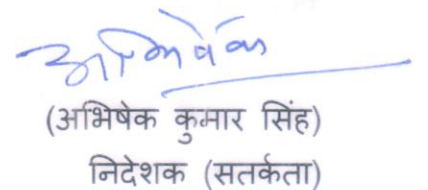 अभिषेक
(अभिषेक कुमार सिंह)
निदेशक (सतर्कता)